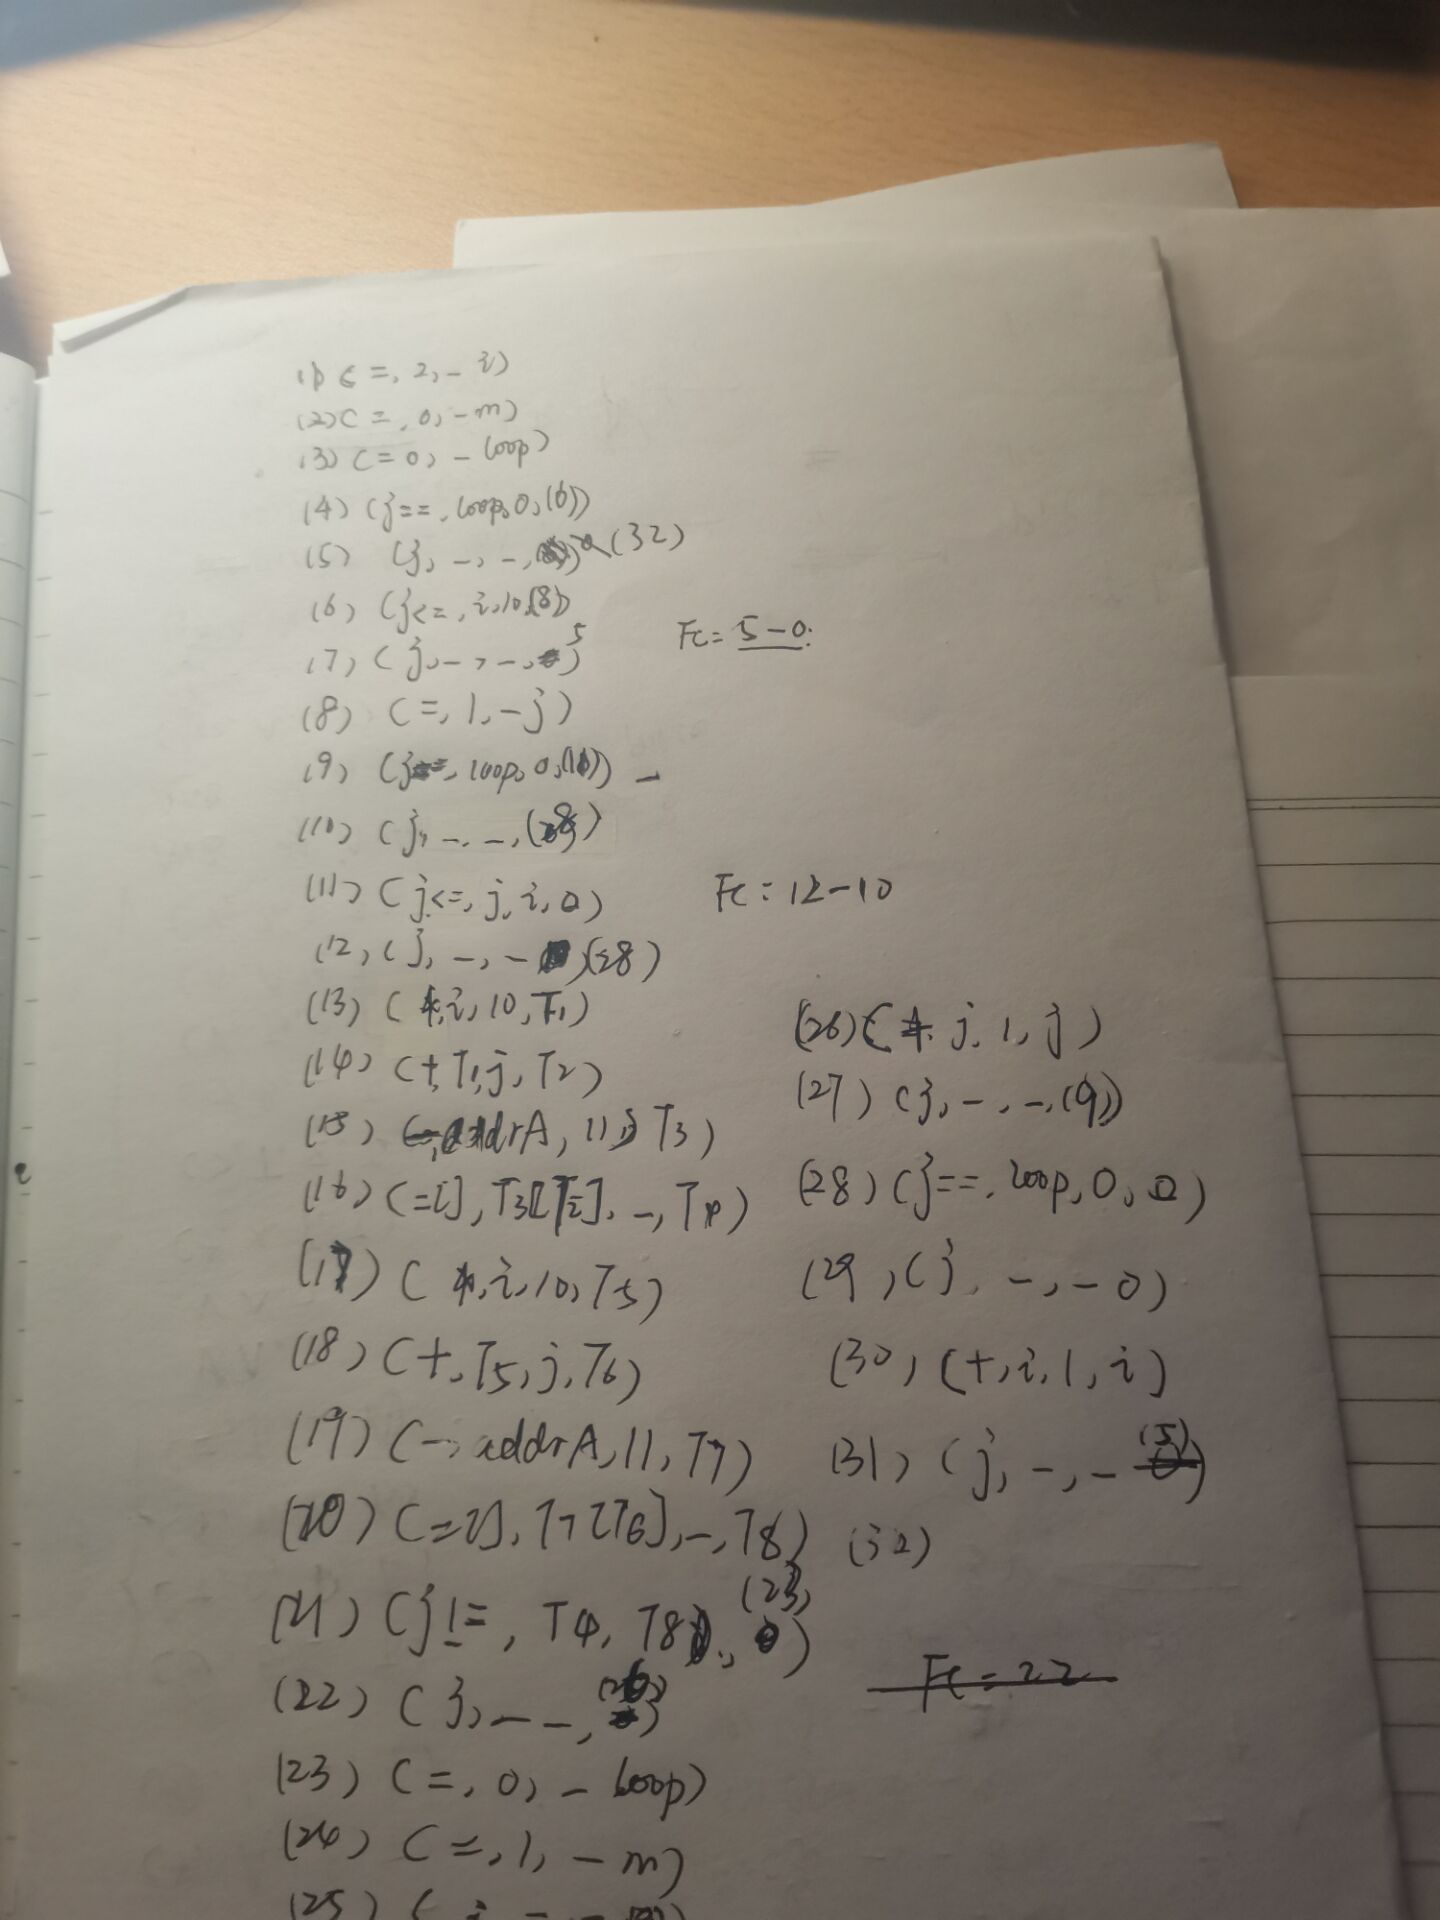 (1) (=, 2, - i)
(2) (=, 0, - m)
(3) (= 0, - loop)
(4) (j==, loop, 0, (6))
(5) (j, -, -, (32)
(6) (j<=, i, 10, (8))
(7) (j, -, -, 5)
Fc = 5-0
(8) (=, 1, - j)
(9) (j==, loop, 0, (11)) -
(10) (j, -, -, (28)
(11) (j<=, j, i, 0)
Fc = 12-10
(12, (j, -, - )(28)
(13) (*, i, 10, T1)
(14) (+, T1, j, T2)
(15) (-, addrA, 11, T3)
(16) (=[], T3[T2], -, T4)
(17) (*, i, 10, T5)
(18) (+, T5, j, T6)
(19) (-, addrA, 11, T7)
(20) (=[], T7[T6], -, T8)
(21) (j!=, T4, T8, (23)
(22) (j, - -, (26)
(23) (=, 0, - loop)
(24) (=, 1, - m)
(25) (j - -
(26) (+, j, 1, j)
(27) (j, -, -, (9))
(28) (j==, loop, 0, 0)
(29, (j, -, - 0)
(30, (+, i, 1, i)
(31, (j, -, - (5))
(32)
Fc = 22